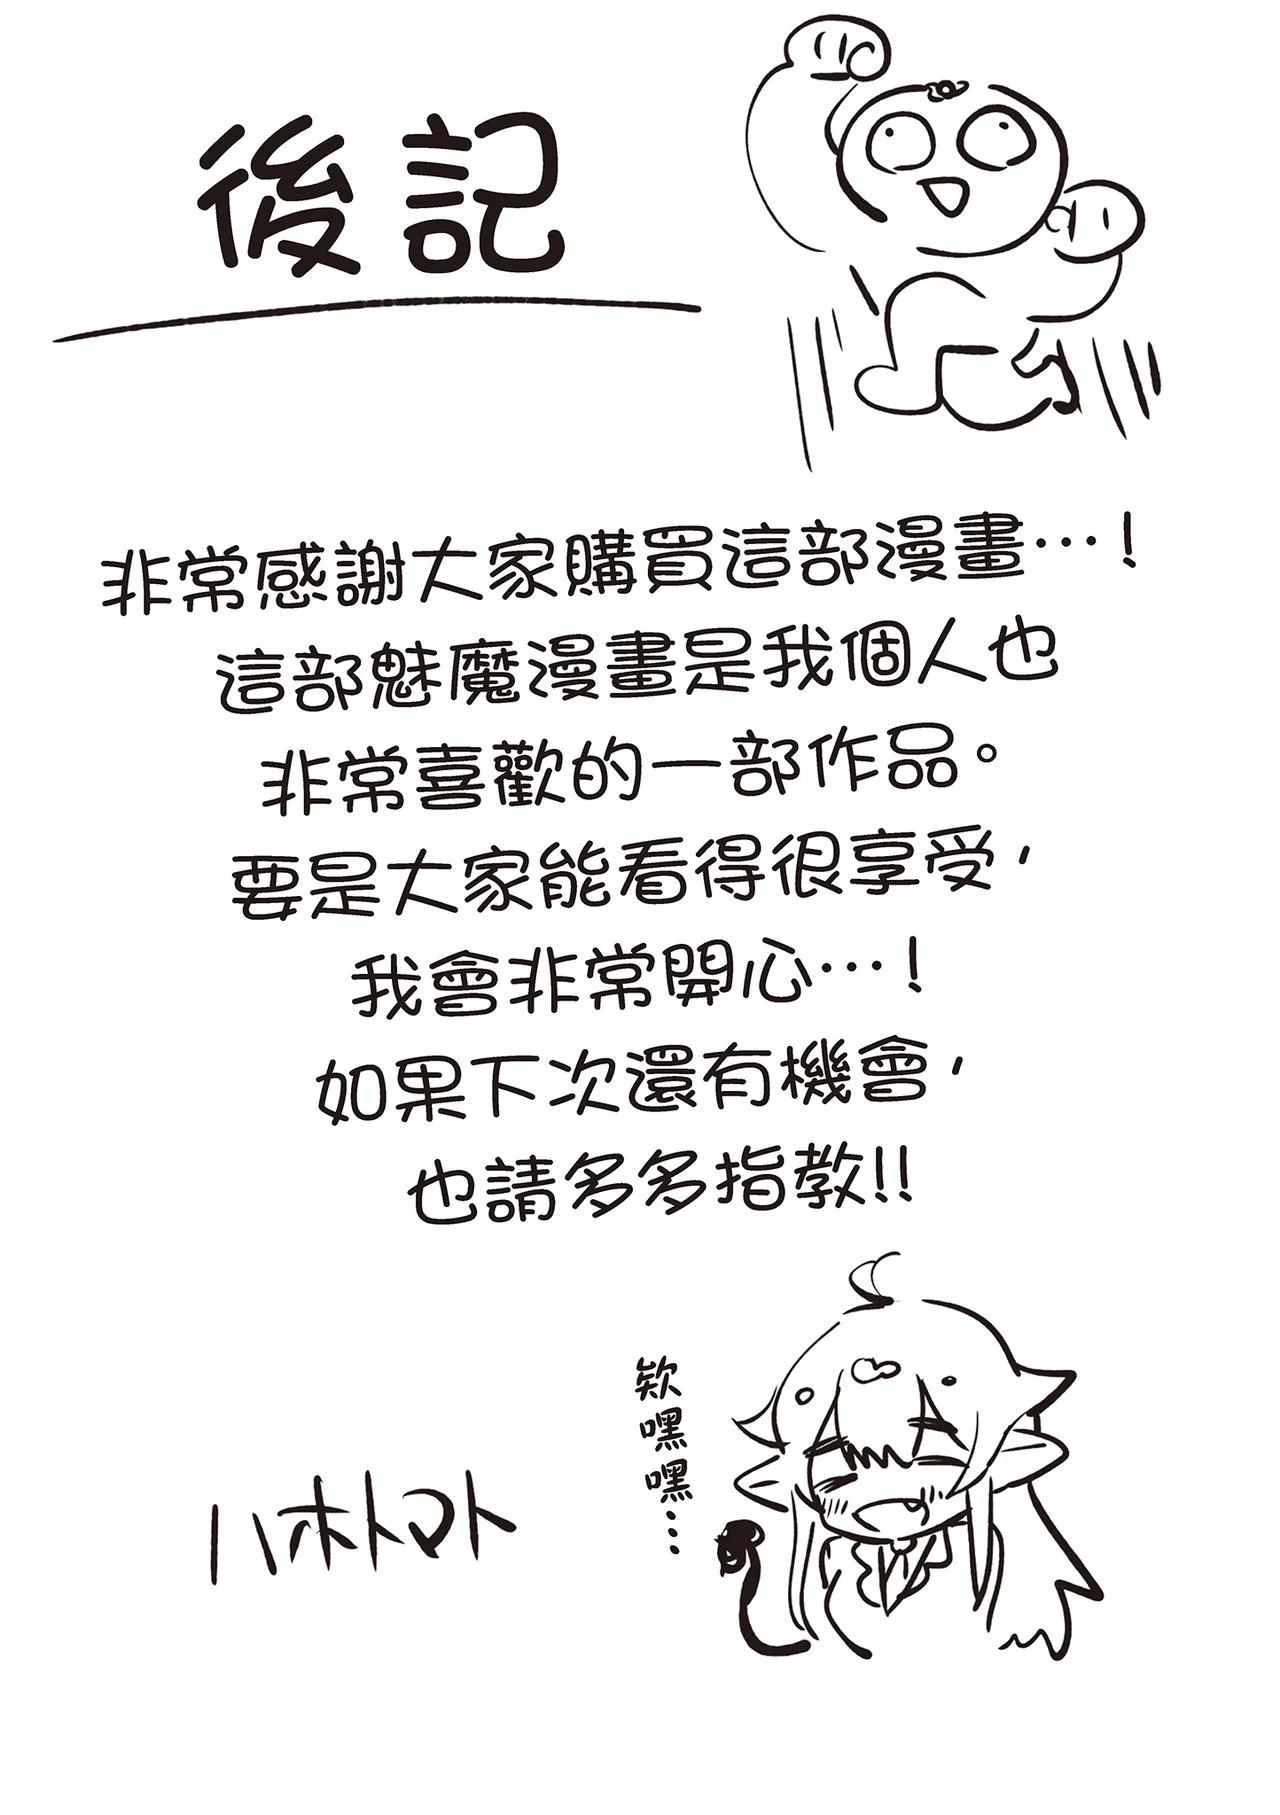 後記
非常感謝大家購買這部漫畫…！
這部魅魔漫畫是我個人也
非常喜歡的一部作品。
要是大家能看得很享受，
我會非常開心…！
如果下次還有機會，
也請多多指教!!
欸嘿嘿…
ハホトマト